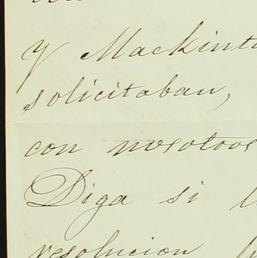 y Mackinto
solicitaban,
con nosotros
Diga si l
resolucion